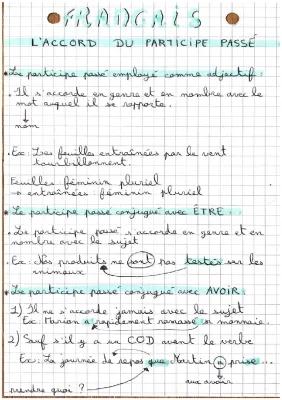 FRANÇAIS
L'ACCORD DU PARTICIPE PASSÉ
• Le participe passé employé comme adjectif :
• Il s'accorde en genre et en nombre avec le
mot auquel il se rapporte.
↓
nom
• Ex : Les feuilles entraînées par le vent
tourbillonnent.
Feuilles féminin pluriel
→ entraînées : féminin pluriel
• Le participe passé conjugué avec ÊTRE :
• Le participe passé s'accorde en genre et en
nombre avec le sujet
• Ex : Nos produits ne sont pas testés sur les
animaux
• Le participe passé conjugué avec AVOIR :
1) Il ne s'accorde jamais avec le sujet
Ex : Marion a rapidement ramassé sa monnaie.
2) Sauf s'il y a un COD avant le verbe
Ex : La journée de repos que Martin a prise ...
prendre quoi ?
aux avoir